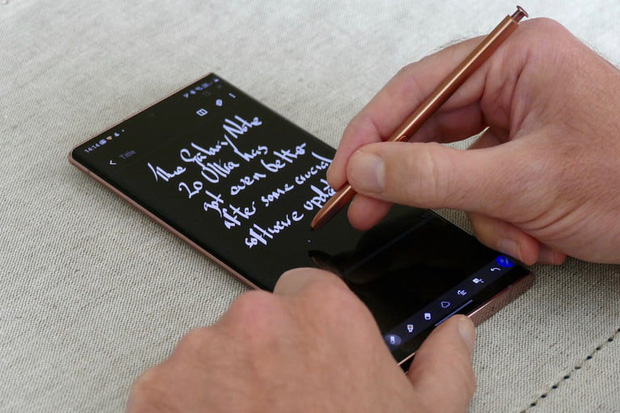 14:14
Title
The Galaxy Note
20 Ultra has
got even better
after some crucial
software update